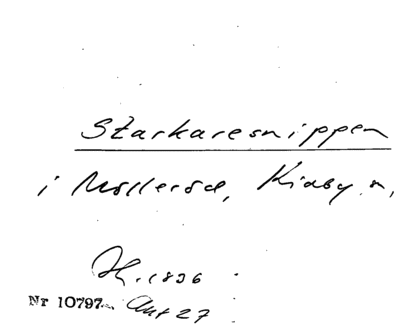 Starkaresnippen
i Mölleröd, Kiaby s,
H. 1836
Nr 10797 Aut 27